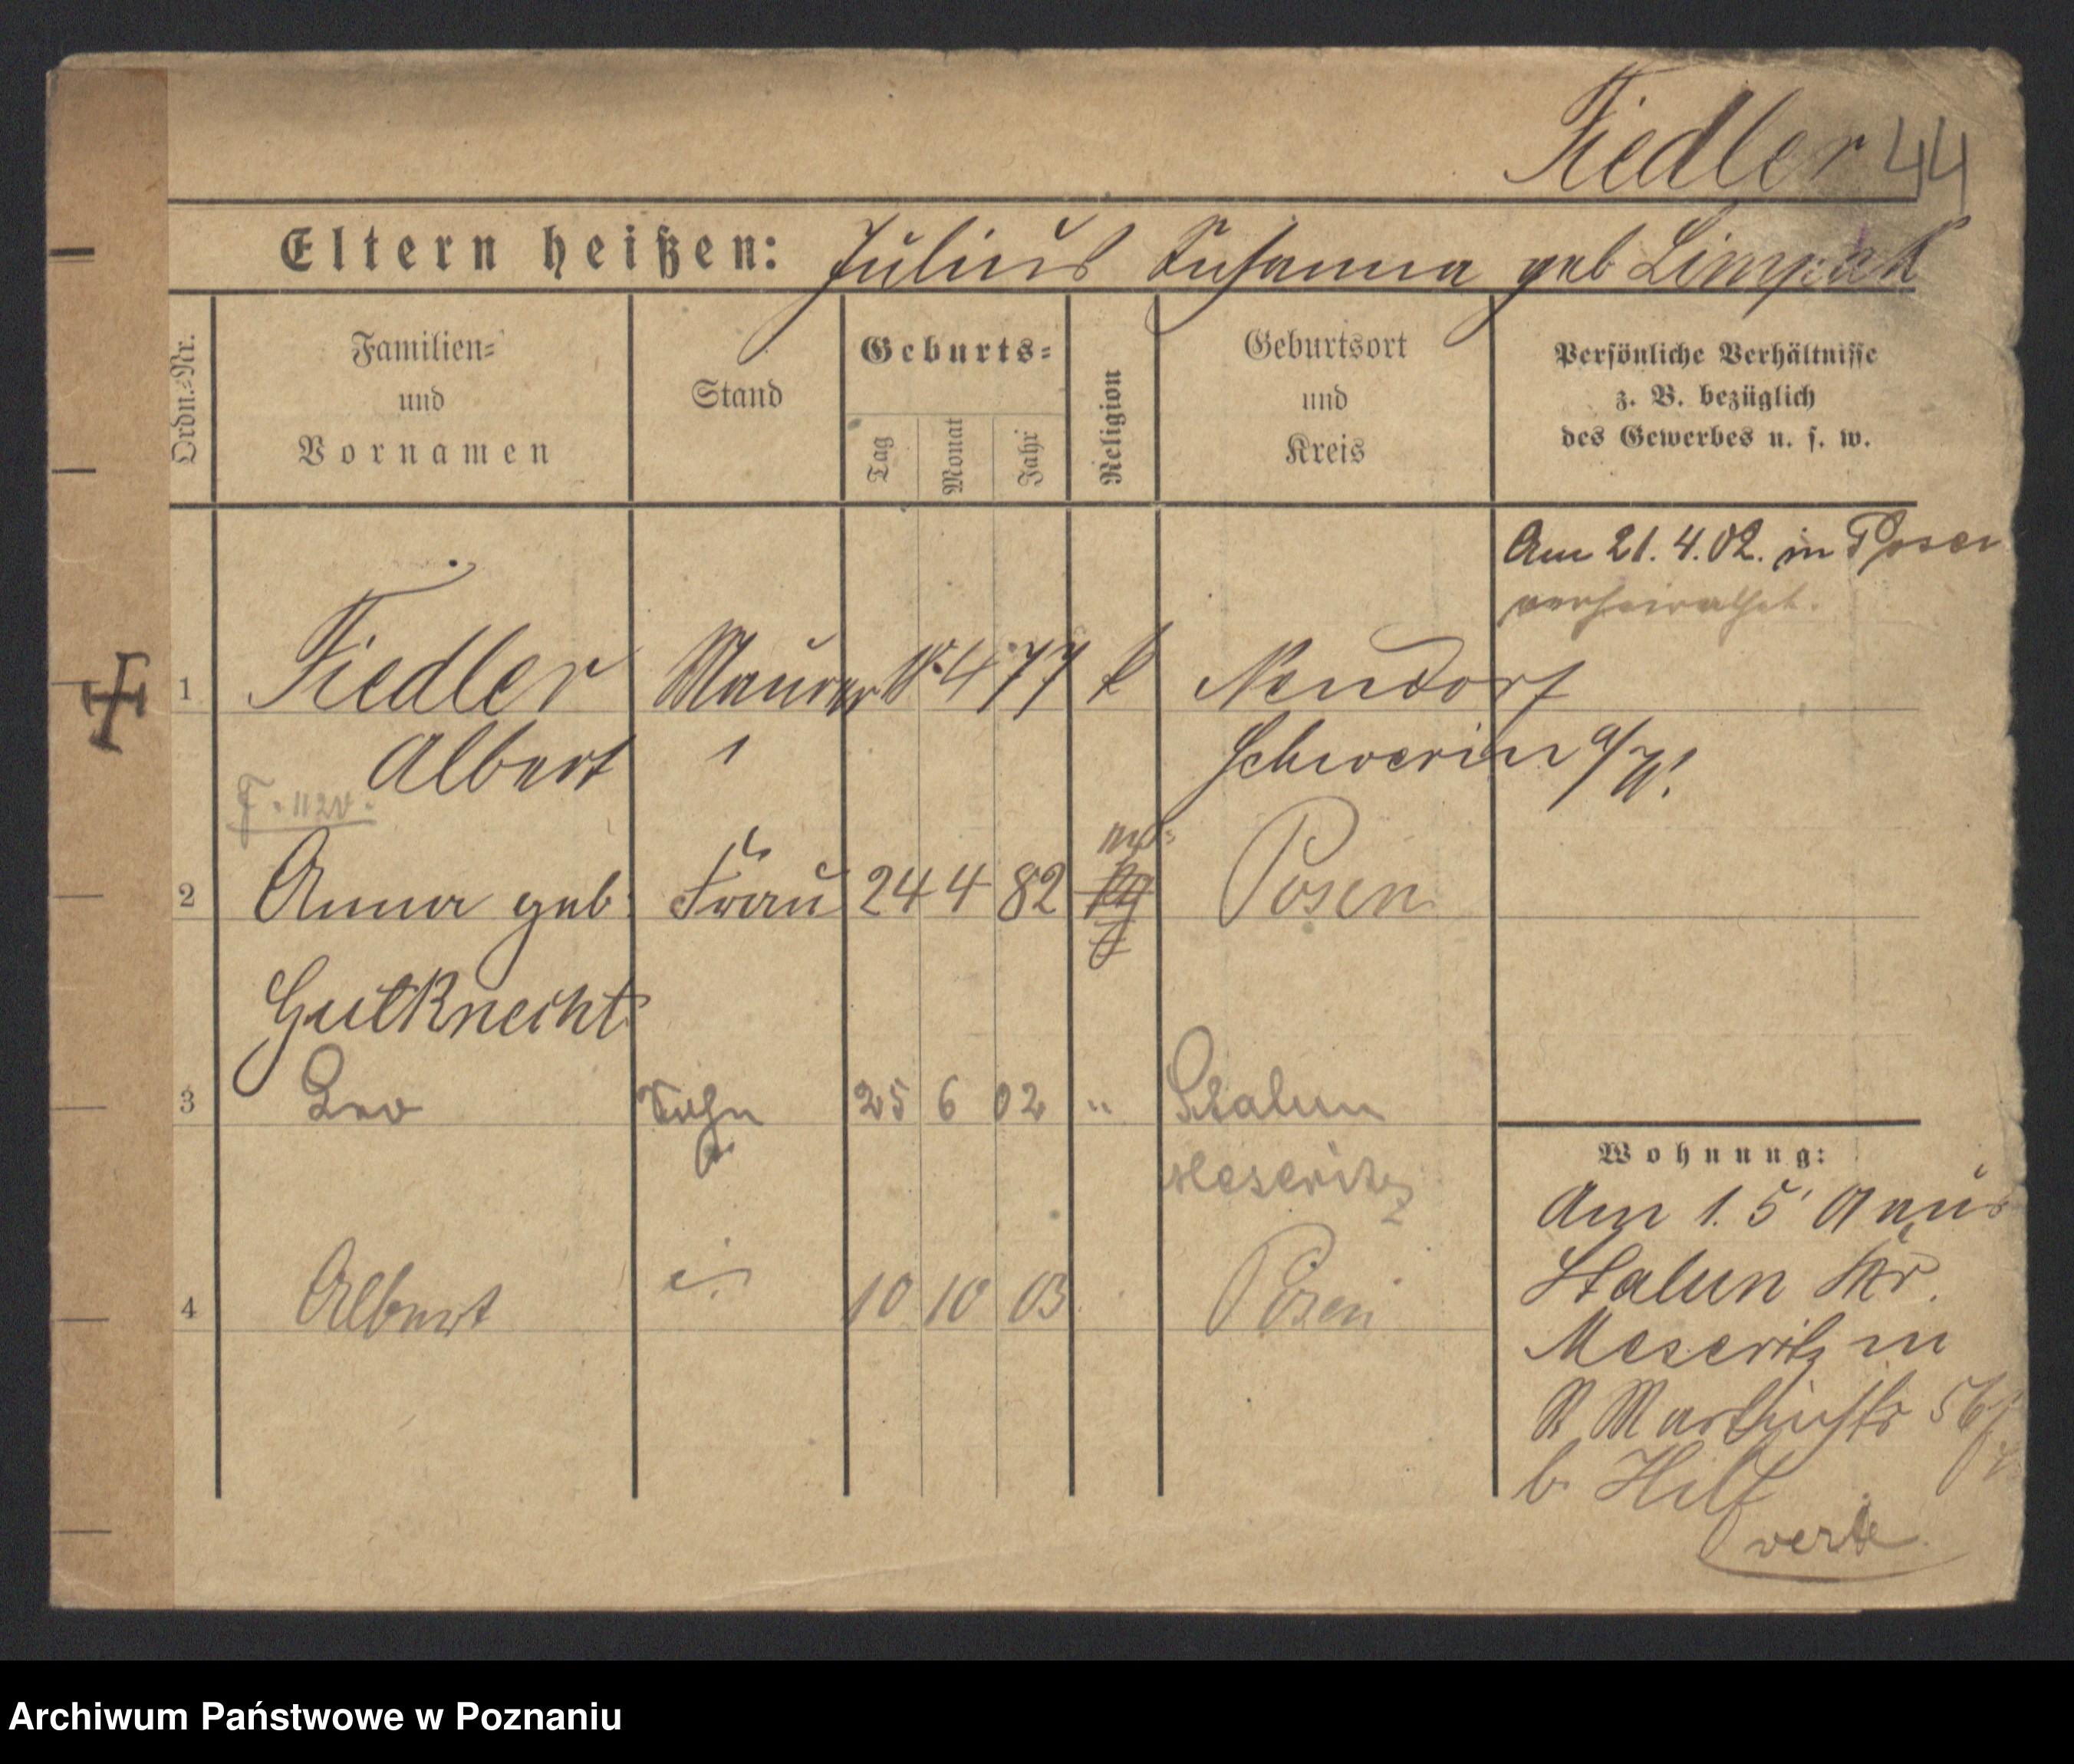 Fiedler 44
Eltern heißen: Julius Susanna geb
Ordn.-Nr.
Familien-
und
Vornamen
Stand
Geburts-
Tag
Monat
Jahr
Religion
Geburtsort
und
Kreis
Persönliche Verhältnisse
z. B. bezüglich
des Gewerbes u. s. w.
Am 21. 4. 02. in Posen
verheirathet.
1 Fiedler Maurer 4 77 k Neudorf
Albert Schwerin a/W.
2 Anna geb: Frau 24 4 82 Posen
Gutknecht
3 Leo Sohn 25 6 02 " Stalun
Meseritz
4 Albert 10 10 03 Posen
Wohnung:
Am 1. 5 aus
Stalun Kr.
Meseritz in
St Martinstr 56
b. Hilf
verte
Archiwum Państwowe w Poznaniu